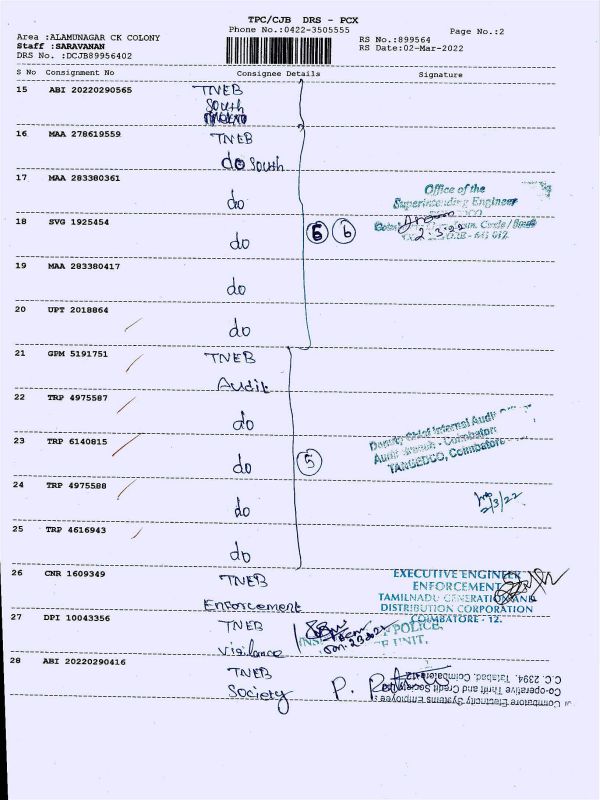 TPC/CJB DRS - PCX
Phone No.:0422-3505555
Page No.:2
Area :ALAMUNAGAR CK COLONY
RS No.:899564
Staff :SARAVANAN
RS Date:02-Mar-2022
DRS No. :DCJB89956402
S No Consignment No Consignee Details Signature
15 ABI 20220290565 TNEB
South
16 MAA 278619559 TNEB
do South
17 MAA 283380361 do
Office of the
Superintending Engineer
18 SVG 1925454 do
6 6
2.3.22
19 MAA 283380417 do
20 UPT 2018864 do
21 GPM 5191751 TNEB
Audit
22 TRP 4975587 do
23 TRP 6140815 do
5
Deputy Chief Internal Audit
Audit Branch - Coimbatore
TANGEDCO, Coimbatore
24 TRP 4975588 do
2/3/22
25 TRP 4616943 do
26 CNR 1609349 TNEB
Enforcement
EXECUTIVE ENGINEER
ENFORCEMENT
TAMILNADU GENERATION AND
DISTRIBUTION CORPORATION
COIMBATORE - 12.
27 DPI 10043356 TNEB
Vigilance
POLICE,
UNIT.
28 ABI 20220290416 TNEB
Society
P.
Coimbatore Electricity Systems Employees
Co-operative Thrift and Credit Society
C.C. 2394, Tatabad, Coimbatore-12